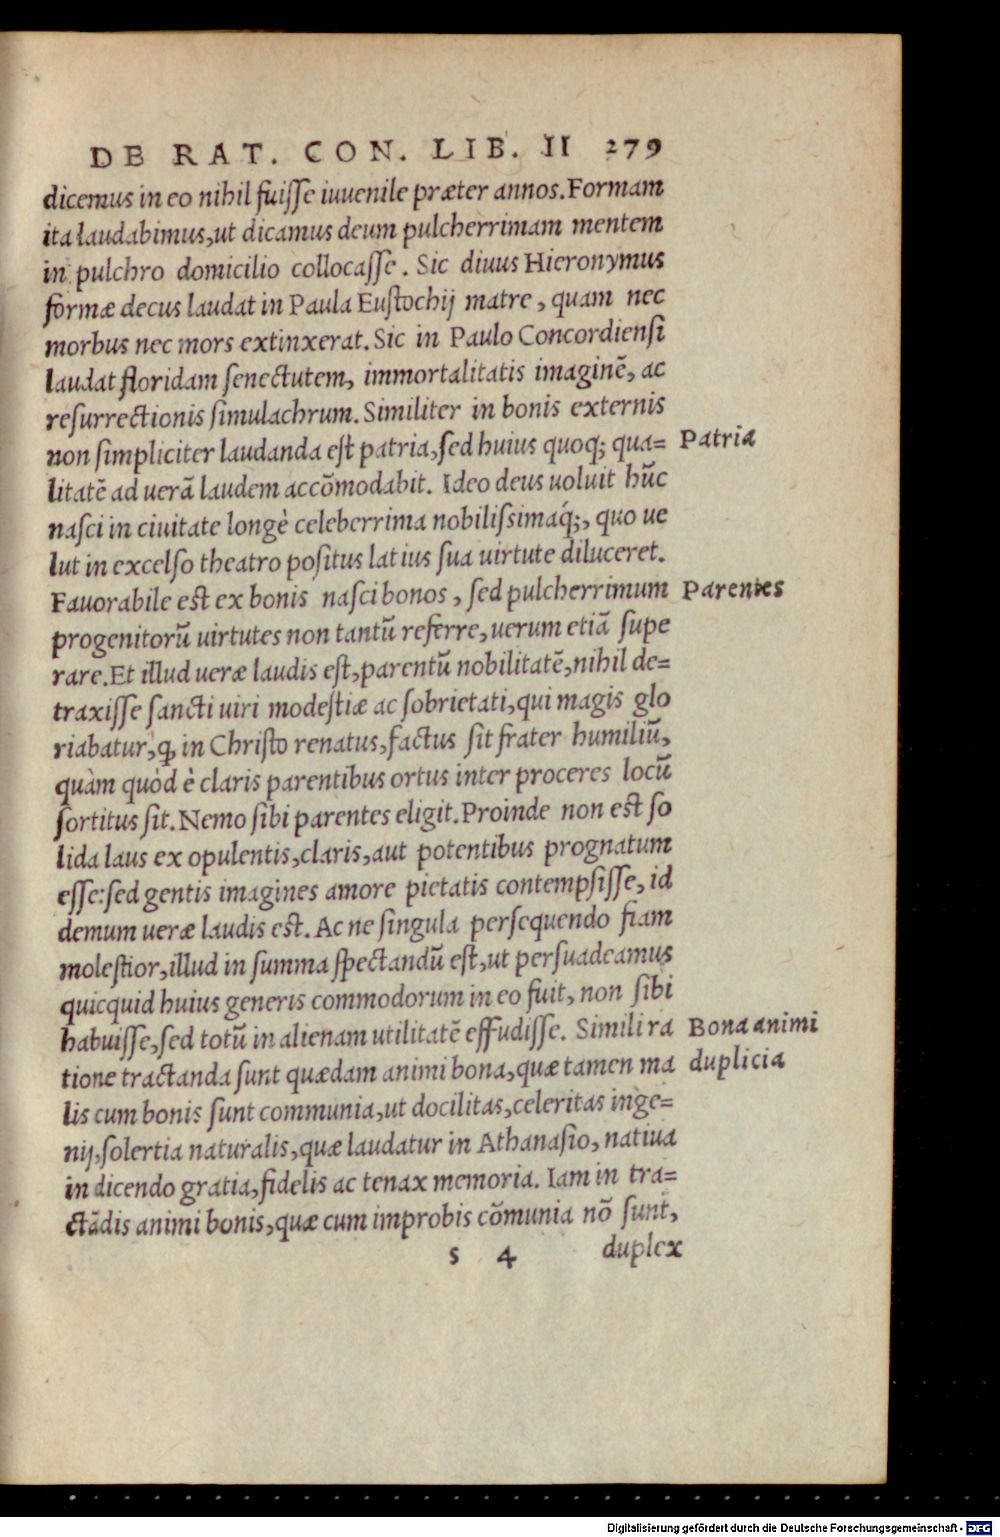 DE RAT. CON. LIB. II 279
dicemus in eo nihil fuiſſe iuuenile præter annos. Formam
ita laudabimus, ut dicamus deum pulcherrimam mentem
in pulchro domicilio collocaſſe. Sic diuus Hieronymus
formæ decus laudat in Paula Euſtochij matre, quam nec
morbus nec mors extinxerat. Sic in Paulo Concordienſi
laudat floridam ſenectutem, immortalitatis imaginē, ac
reſurrectionis ſimulachrum. Similiter in bonis externis
non ſimpliciter laudanda eſt patria, ſed huius quoq; qua=
Patria
litatē ad uerā laudem accōmodabit. Ideo deus uoluit hūc
naſci in ciuitate longè celeberrima nobiliſſimaq́;, quo ue
lut in excelſo theatro poſitus latius ſua uirtute diluceret.
Fauorabile eſt ex bonis naſci bonos, ſed pulcherrimum
Parentes
progenitorū uirtutes non tantū referre, uerum etiā ſupe
rare. Et illud ueræ laudis eſt, parentū nobilitatē, nihil de=
traxiſſe ſancti uiri modeſtiæ ac ſobrietati, qui magis glo
riabatur, ꝙ in Chriſto renatus, factus ſit frater humiliū,
quàm quòd è claris parentibus ortus inter proceres locū
ſortitus ſit. Nemo ſibi parentes eligit. Proinde non eſt ſo
lida laus ex opulentis, claris, aut potentibus prognatum
eſſe: ſed gentis imagines amore pietatis contempſiſſe, id
demum ueræ laudis eſt. Ac ne ſingula perſequendo fiam
moleſtior, illud in ſumma ſpectandū eſt, ut perſuadeamus
quicquid huius generis commodorum in eo fuit, non ſibi
habuiſſe, ſed totū in alienam utilitatē effudiſſe. Simili ra
Bona animi
tione tractanda ſunt quædam animi bona, quæ tamen ma
duplicia
lis cum bonis ſunt communia, ut docilitas, celeritas inge=
nij, ſolertia naturalis, quæ laudatur in Athanaſio, natiua
in dicendo gratia, fidelis ac tenax memoria. Iam in tra=
ctādis animi bonis, quæ cum improbis cōmunia nō ſunt,
s 4 duplex
Digitalisierung gefördert durch die Deutsche Forschungsgemeinschaft - DFG